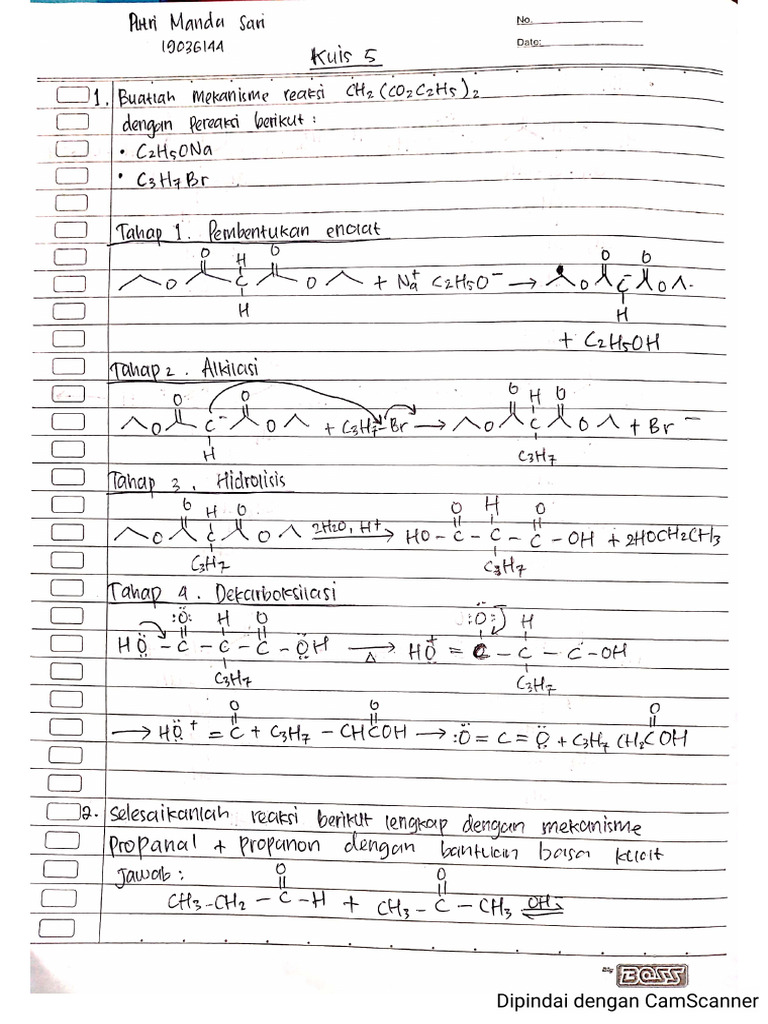 Putri Manda Sari
No.
19036144
Date:
Kuis 5
1. Buatlah mekanisme reaksi CH2(CO2C2H5)2
dengan pereaksi berikut :
• C2H5ONa
• C3H7Br
Tahap 1. Pembentukan enolat
O H O
O C O + Na+ C2H5O- → O O O C- O
H H
+ C2H5OH
Tahap 2. Alkilasi
O O O H O
O C- O + C3H7-Br → O C O + Br-
H C3H7
Tahap 3. Hidrolisis
O H O O H O
O C O 2H2O, H+ → HO - C - C - C - OH + 2HOCH2CH3
C3H7 C3H7
Tahap 4. Dekarboksilasi
:O: H O :O: H
HO - C - C - C - OH → Δ HO+ = C - C - C - OH
C3H7 C3H7
O O O
→ HO+ = C + C3H7 - CHCOH → :O = C = O + C3H7 CH2COH
2. Selesaikanlah reaksi berikut lengkap dengan mekanisme
propanal + propanon dengan bantuan basa kuat
Jawab :
O O
CH3-CH2 - C - H + CH3 - C - CH3 OH-
By BOSS
Dipindai dengan CamScanner